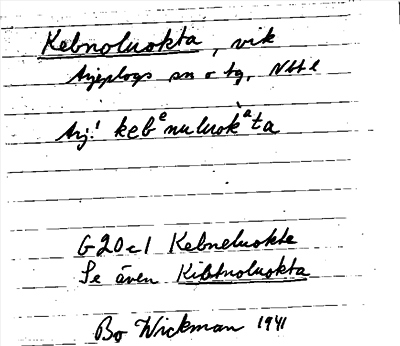 Kebnoluokta, vik
Arjeplogs sn o tg, Nbt l
Arj.! kebᵉnuluokᵃ̀ta
G20c1 Kebneluokte
Se även Kibtnoluokta
Bo Wickman 1941